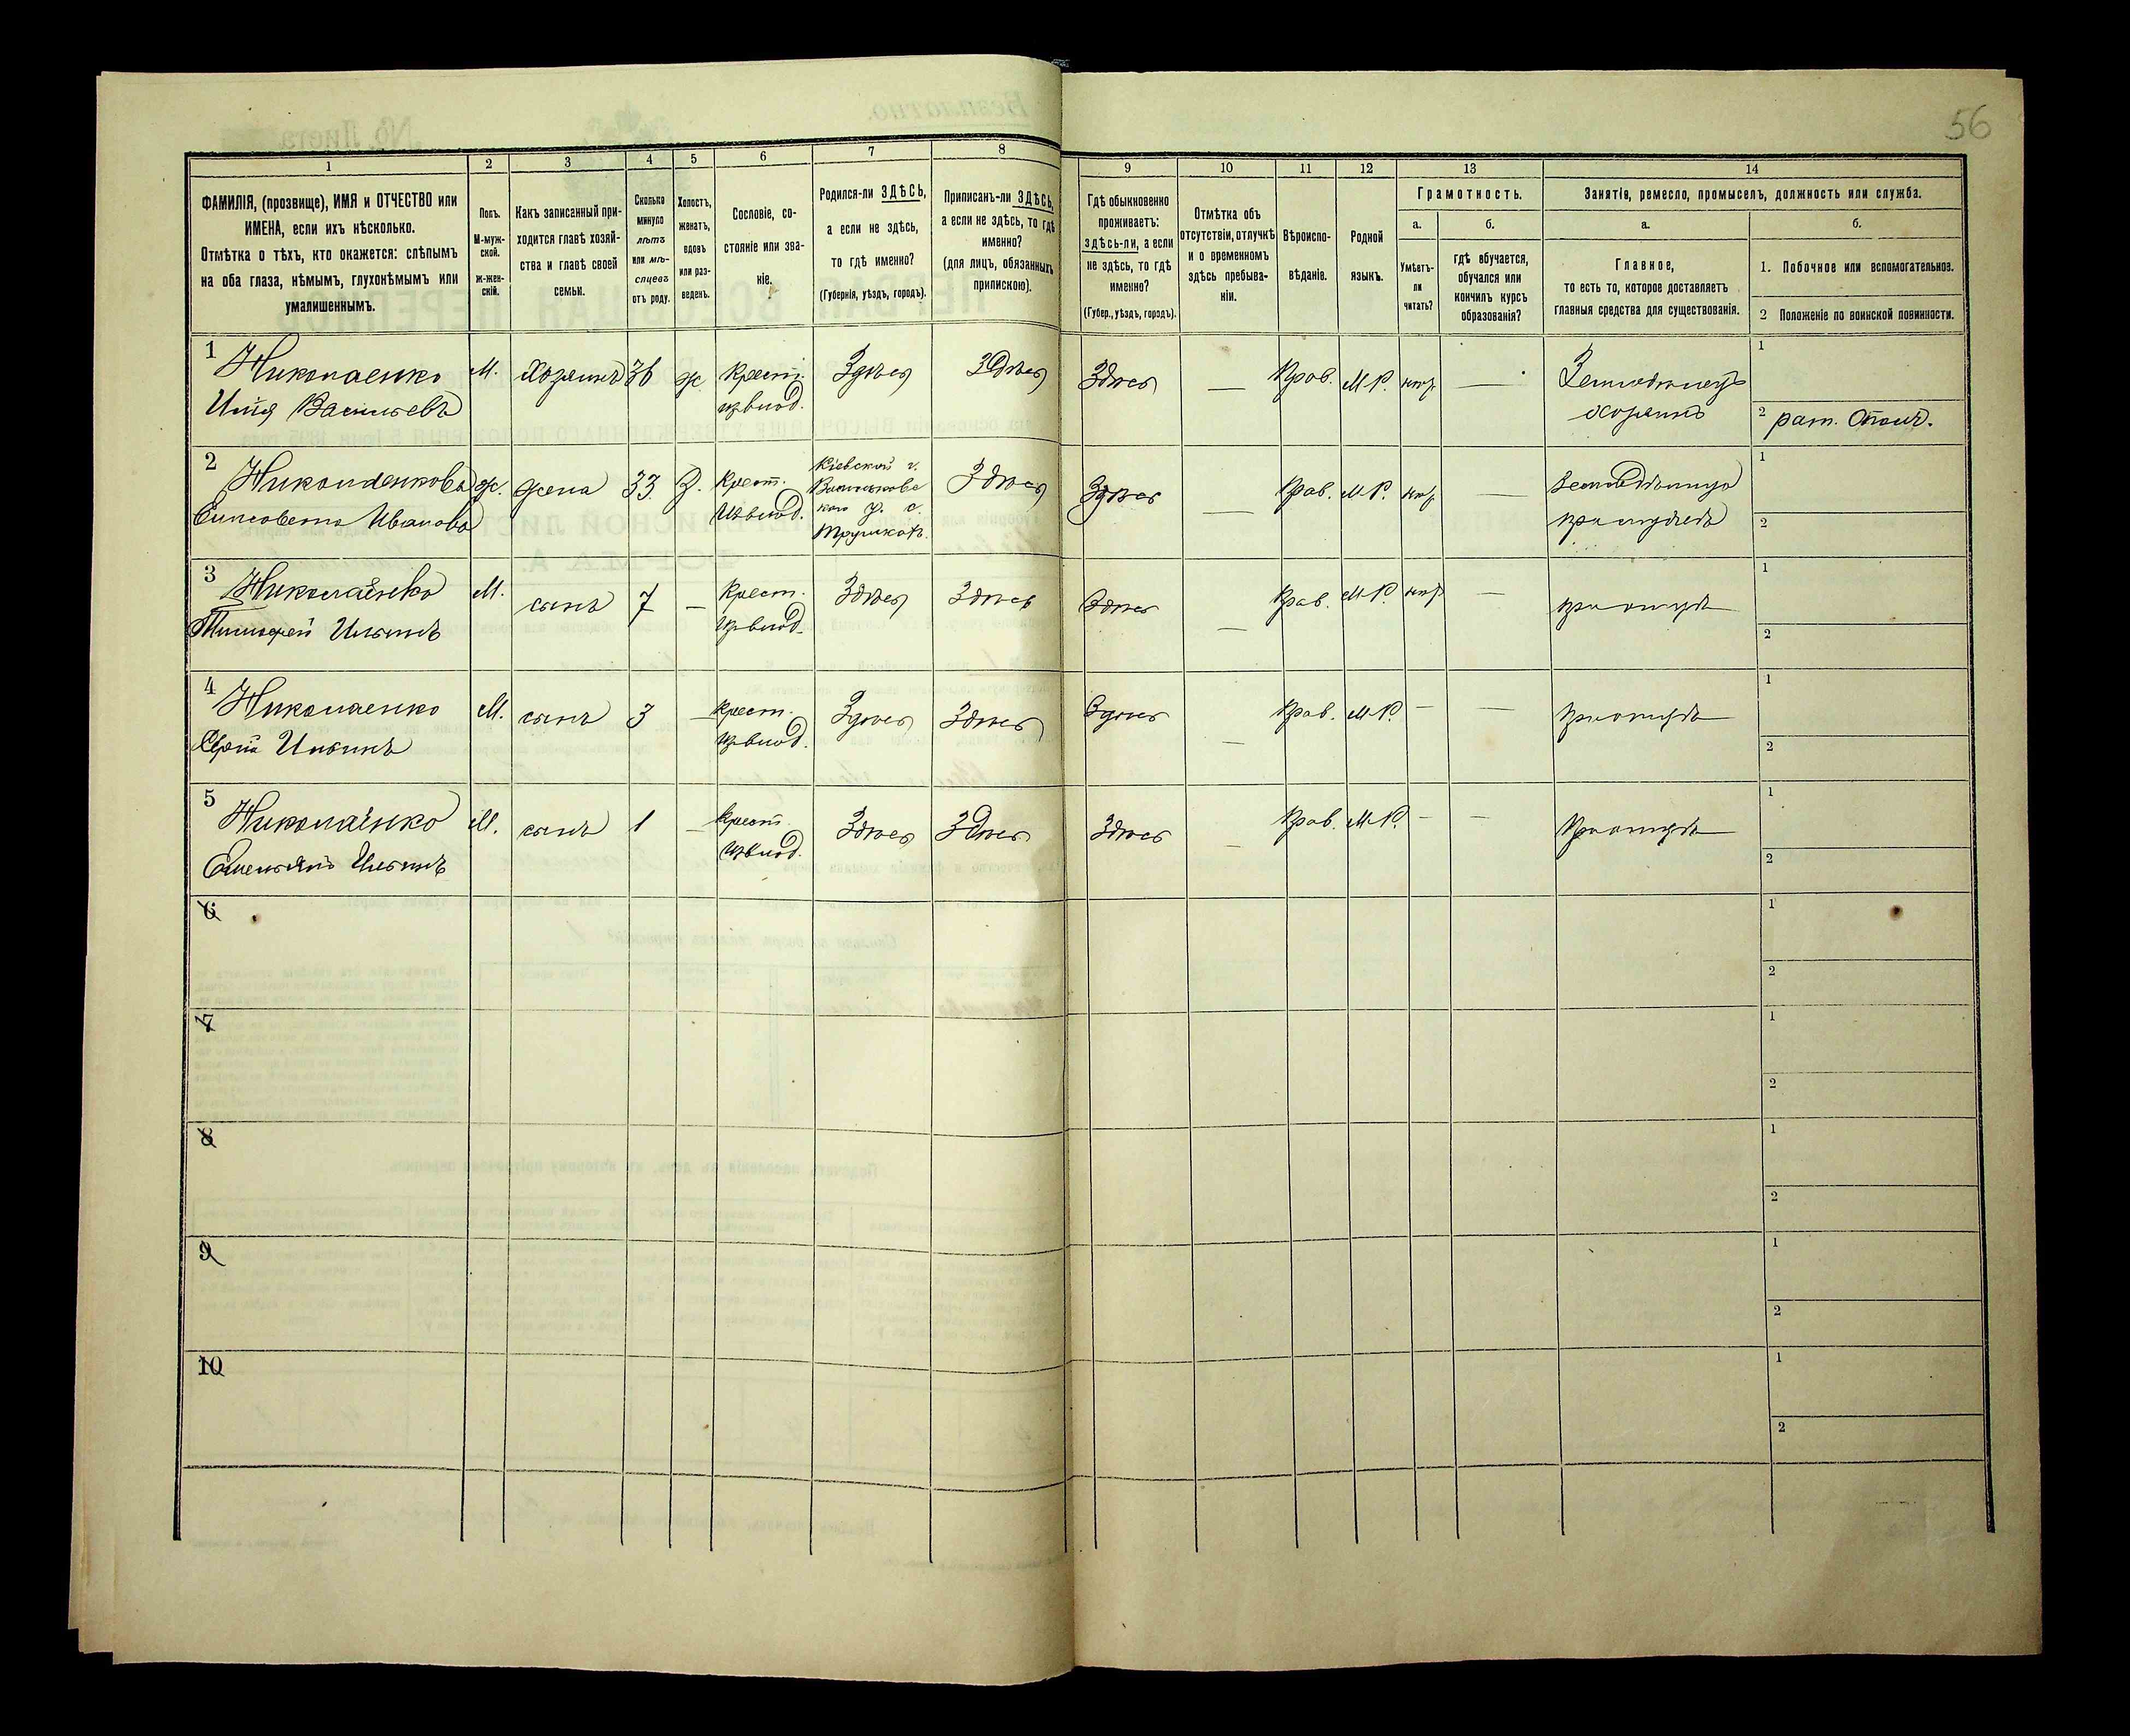 56
1
2
3
4
5
6
7
8
9
10
11
12
13
14
ФАМИЛІЯ, (прозвище), ИМЯ и ОТЧЕСТВО или
ИМЕНА, если ихъ нѣсколько.
Отмѣтка о тѣхъ, кто окажется: слѣпымъ
на оба глаза, нѣмымъ, глухонѣмымъ или
умалишеннымъ.
Полъ.
М-муж-
ской.
Ж-жен-
скій.
Какъ записанный при-
ходится главѣ хозяй-
ства и главѣ своей
семьи.
Сколько
минуло
лѣтъ
или мѣ-
сяцевъ
отъ роду.
Холостъ,
женатъ,
вдовъ
или раз-
веденъ.
Сословіе, со-
стояніе или зва-
ніе.
Родился-ли ЗДѢСЬ,
а если не здѣсь,
то гдѣ именно?
(Губернія, уѣздъ, городъ).
Приписанъ-ли ЗДѢСЬ,
а если не здѣсь, то гдѣ
именно?
(для лицъ, обязанныхъ
припискою).
Гдѣ обыкновенно
проживаетъ:
здѣсь-ли, а если
не здѣсь, то гдѣ
именно?
(Губер., уѣздъ, городъ).
Отмѣтка объ
отсутствіи, отлучкѣ
и о временномъ
здѣсь пребыва-
ніи.
Вѣроиспо-
вѣданіе.
Родной
языкъ.
Грамотность.
а.
Умѣетъ-
ли
читать?
б.
гдѣ обучается,
обучался или
кончилъ курсъ
образованія?
Занятія, ремесло, промыселъ, должность или служба.
а.
Главное,
то есть то, которое доставляетъ
главныя средства для существованія.
б.
1. Побочное или вспомогательное.
2 Положеніе по воинской повинности.
1 Николаенко М. Хозяинъ 36 ж Крест. Здѣсь Здѣсь Здѣсь — Прав. М.Р. нѣтъ — Земледѣлецъ 1
Илія Васильевъ из влад. хозяинъ 2 рат. Ополч.
2 Николаенкова ж. жена 33 З. Крест. Кіевской г. Здѣсь Здѣсь — Прав. М.Р. нѣтъ — 1
Елисавета Иванова из влад. Васильковс
каго у. с.
Трушкахъ. при мужѣ 2
3 Николаенко М. сынъ 7 — Крест. Здѣсь Здѣсь Здѣсь — Прав. М.Р. нѣтъ — при отцѣ 1
Тимофей Ильинъ из влад. 2
4 Николаенко М. сынъ 3 — Крест. Здѣсь Здѣсь Здѣсь — Прав. М.Р. — — при отцѣ 1
Ильинъ из влад. 2
5 Николаенко М. сынъ 1 — Крест. Здѣсь Здѣсь Здѣсь — Прав. М.Р. — — при отцѣ 1
Емельянъ Ильинъ из влад. 2
6 1
2
7 1
2
8 1
2
9 1
2
10 1
2